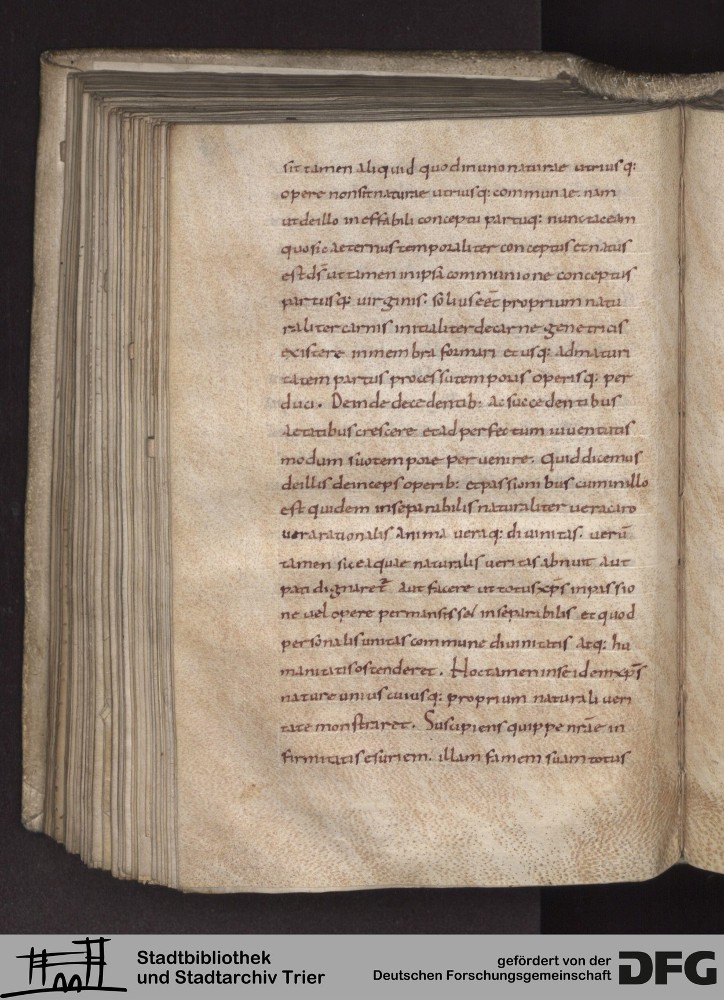 sit tamen aliquid quod in uno naturae utriusq:
opere non sit naturae utriusq: communae. nam
ut de illo ineffabili conceptu partuq: nunc taceam
quo sic aeternus temporaliter conceptus et natus
est ds̄ ut tamen in ipsa communione conceptus
partusq: uirginis. solius eēt proprium natu
raliter carnis initialiter de carne genetricis
existere in membra formari et usq: ad maturi
tatem partus processu temporis operisq: per
duci. Deinde decedentib: ac succedentibus
aetatibus crescere et ad perfectum iuuentatis
modum suo tempore peruenire. Quid dicemus
de illis deinceps operib: et passionibus cum in illo
est quidem inseparabilis naturaliter uera caro
uera rationalis anima ueraq: diuinitas. uerū
tamen sic ea quae naturalis ueritas abnuit aut
pati dignaret᷑ aut facere ut totus xp̄s in passio
ne uel opere permansisset inseparabilis et quod
personalis unitas commune diuinitatis atq: hu
manitatis ostenderet. Hoc tamen in se idem xp̄s
nature unius cuiusq: proprium naturali ueri
tate monstraret. Suscipiens quippe nrāe in
firmitatis esuriem. illam famem suam totus
Stadtbibliothek
und Stadtarchiv Trier
gefördert von der
Deutschen Forschungsgemeinschaft
DFG